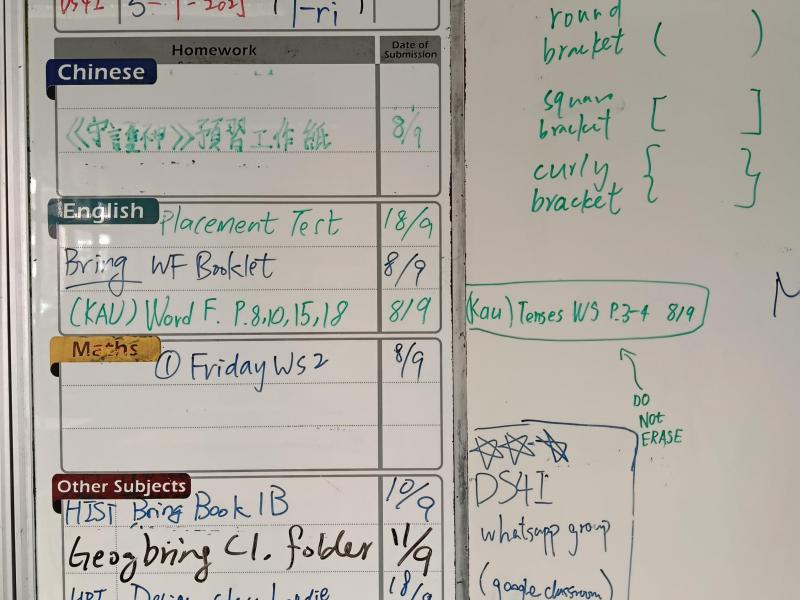 Homework
Date of Submission
Chinese
預習工作紙 8/9
English
Placement Test 18/9
Bring WF Booklet 8/9
(KAU) Word F. P.8,10,15,18 8/9
Maths
① Friday WS 2 8/9
Other Subjects
HIST Bring Book 1B 10/9
Geog bring Cl. folder 11/9
18/9
round
bracket ( )
square
bracket [ ]
curly
bracket { }
(Kau) Tenses WS P.3-4 8/9
DO
NOT
ERASE
DS4I
whatsapp group
(google classroom)